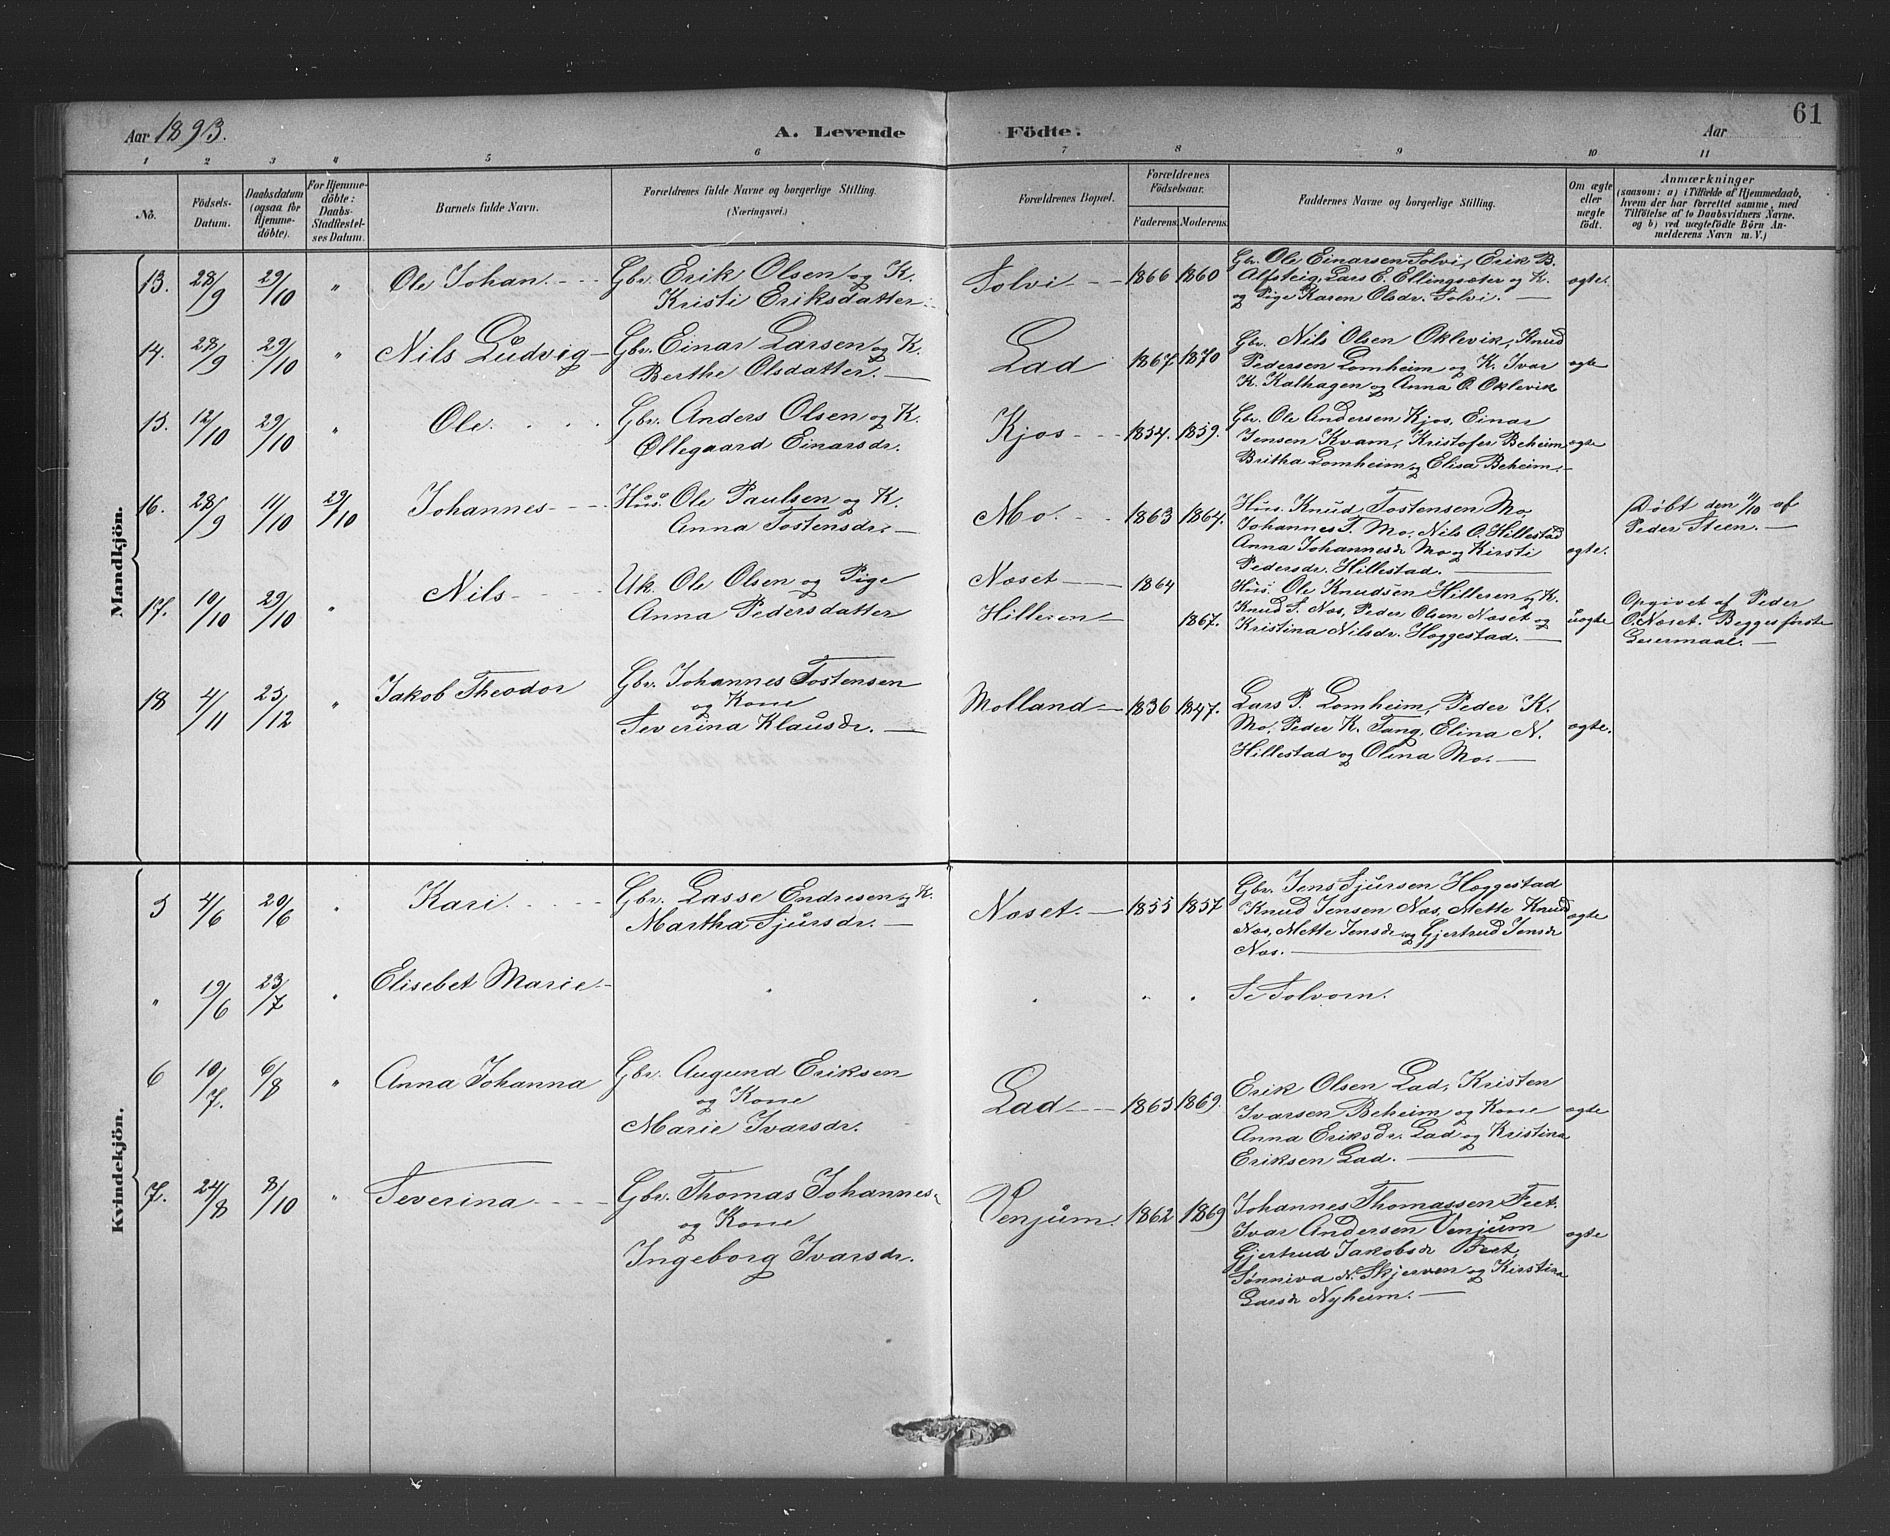 61
Aar 1893. A. Levende Födte. Aar
1 2 3 4 5 6 7 8 9 10 11
No.
Födsels-
Datum.
Daabsdatum
(ogsaa for
Hjemme-
döbte).
For Hjemme-
döbte:
Daabs-
Stadfæstel-
ses Datum.
Barnets fulde Navn.
Forældrenes fulde Navne og borgerlige Stilling.
(Næringsvei.)
Forældrenes Bopæl.
Forældrenes
Födselsaar.
Faderens. Moderens.
Faddernes Navne og borgerlige Stilling.
Om ægte
eller
uægte
födt.
Anmærkninger
(saasom: a) i Tilfælde af Hjemmedaab,
hvem der har forrettet samme, med
Tilföielse af to Daabsvidners Navne.
og b) ved uægtefödte Börn An-
melderens Navn m. V.)
Mandkjön.
13. 28/9 29/10 " Ole Johan Gbr. Erik Olsen og K.
Kristi Eriksdatter.
Solvi 1866 1860
Gbr. Ole Einarsen Solvi, Erik B.
Alfsteig, Lars E. Ellingsæter og K.
og Pige Karen Olsdr. Solvi.
ægte.
14. 28/9 29/10 " Nils Ludvig Gbr. Einar Larsen og K.
Berthe Olsdatter.
Lad 1867 1870
Gbr. Nils Olsen Oklevik, Knud
Pedersen Lomheim og K. Ivar
K. Kalhagen og Anna O. Oklevik
ægte
15. 12/10 29/10 " Ole. Gbr. Anders Olsen og K.
Ollegaard Einarsdr.
Kjos 1854. 1859.
Gbr. Ole Andersen Kjos, Einar
Jensen Kvam, Kristofer Beheim
Britha Lomheim og Elisa Beheim.
ægte
16. 28/9 11/10 29/10 Johannes Hus. Ole Paulsen og K.
Anna Tostensdr.
Mo. 1863 1864.
Hus. Knud Tostensen Mo
Johannes T. Mo, Nils O. Hillestad
Anna Johannesdr Mo og Kirsti
Pedersdr. Hillestad.
ægte.
Døbt den 11/10 af
Peder Steen.
17. 10/10 29/10 " Nils Uk. Ole Olsen og Pige
Anna Pedersdatter
Næset 1864
Hilleren 1867.
Hus. Ole Knudsen Hilleren og K.
Knud S. Næs, Peder Olsen Næset og
Kristina Nilsdr. Hæggestad.
uægte
Opgivet af Peder
O. Næset. Begges første
Leiermaal.
18 4/11 25/12 " Jakob Theodor Gbr. Johannes Tostensen
og Kone
Severina Klausdr.
Molland 1836 1847.
Lars P. Lomheim, Peder K.
Mo, Peder K. Tang, Elina N.
Hillestad og Olina Mo.
ægte.
Kvindekjön.
5 4/6 20/6 " Kari. Gbr. Lasse Endresen og K.
Martha Sjursdr.
Næset. 1855 1857
Gbr. Jens Sjursen Hæggestad
Knud Jensen Næs, Mette Knud
Næs, Mette Jensdr og Gjertrud Jensdr
Næs.
ægte
" 19/6 23/7 " Elisebet Marie " " " " Se Solvorn.
6 10/7. 6/8 " Anna Johanna Gbr. Augund Eriksen
og Kone
Marie Ivarsdr.
Lad 1865 1869.
Erik Olsen Lad, Kristen
Ivarsen Beheim og Kone
Anna Eriksdr. Lad og Kristina
Eriksen Lad.
ægte
7. 24/8 8/10 " Severina Gbr. Thomas Johannes-
og Kone
Ingeborg Ivarsdr.
Venjum. 1862 1869
Johannes Thomassen Feet.
Ivar Andersen Venjum
Gjertrud Jakobsdr Feet,
Sønniva N. Skjerven og Kirstina
Larsdr Nyheim.
ægte